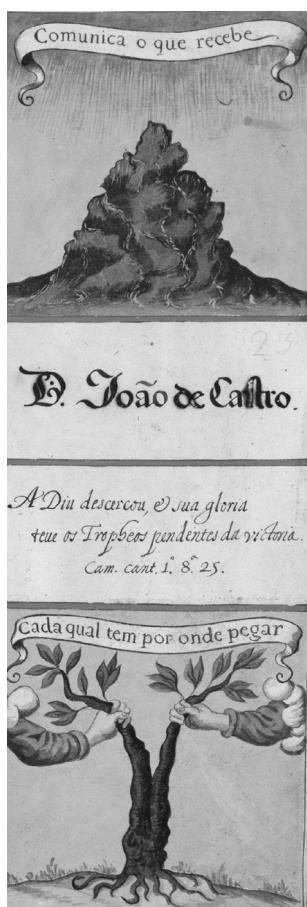 Comunica o que recebe
23
D. João de Castro.
A Diu descercou, & sua gloria
teue os Tropheos pendentes da victoria.
Cam. cant. 1.º 8.ª 25.
Cada qual tem por onde pegar